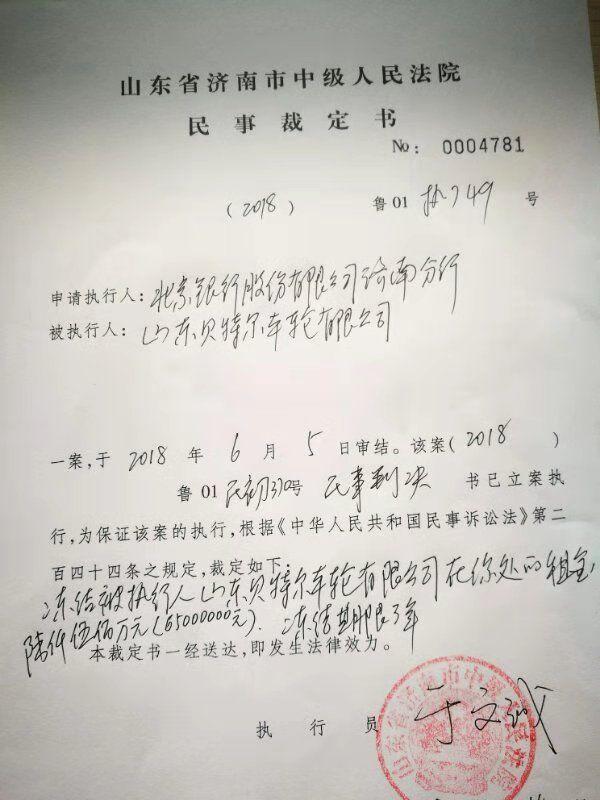 山东省济南市中级人民法院
民事裁定书
No: 0004781
(2018) 鲁01 执749 号
申请执行人：北京银行股份有限公司济南分行
被执行人：山东贝特尔车轮有限公司
一案，于 2018 年 6 月 5 日审结。该案(2018)
鲁01 民初330号 民事判决 书已立案执
行，为保证该案的执行，根据《中华人民共和国民事诉讼法》第二
百四十四条之规定，裁定如下：
冻结被执行人山东贝特尔车轮有限公司在你处的租金
陆仟伍佰万元(65000000元)．冻结期限3年
本裁定书一经送达，即发生法律效力。
执行员 于文
山东省济南市中级人民法院